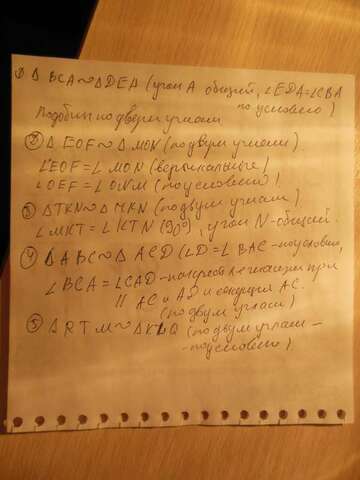 1) Δ BCA ~ Δ DEA (угол A общий, ∠EDA = ∠CBA
по условию)
Подобны по двум углам
2) Δ EOF ~ Δ MON (по двум углам).
∠EOF = ∠MON (вертикальные)
∠OEF = ∠ONM (по условию).
3) ΔTKN ~ Δ MKN (по двум углам)
∠MKT = ∠KTN (90°), угол N - общий.
4) Δ ABC ~ Δ ACD (∠D = ∠BAC - по условию,
∠BCA = ∠CAD - накрест лежащие при
|| AC и AD и секущей AC.
(по двум углам)
5) ΔRTM ~ ΔKLQ (по двум углам -
- по условию)